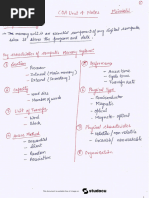 CSA Unit 4 Notes
Memories
The memory unit is an essential component of any digital computer
since it stores the program and data.
Key characteristics of Computer Memory Systems:
① Location
- Processor
- Internal (main)
- External (secondary)
② Capacity
- word size
- Number of words
③ Unit of Transfer
- word
- block
④ Access Method
- Sequential
- Direct
- Random
- Associative
⑤ Performance
- Access time
- Cycle time
- Transfer rate
⑥ Physical Type
- Semiconductor
- Magnetic
- optical
- Magneto-optical
⑦ Physical characteristics
- volatile / non volatile
- erasable / non erasable
⑧ Organisation
studocu